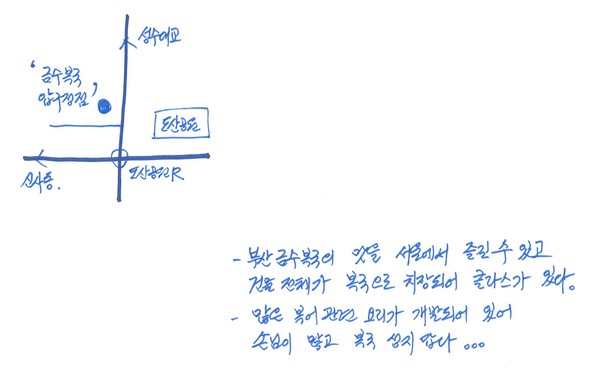 성수대교
'금수복국
압구정점'
도산공원
신사동.
도산공원R
- 부산 금수복국의 맛을 서울에서 즐길 수 있고
건물 전체가 복국으로 치장되어 클라스가 있다.
- 많은 복어 관련 요리가 개발되어 있어
손님이 많고 복국 성지 답다 ...